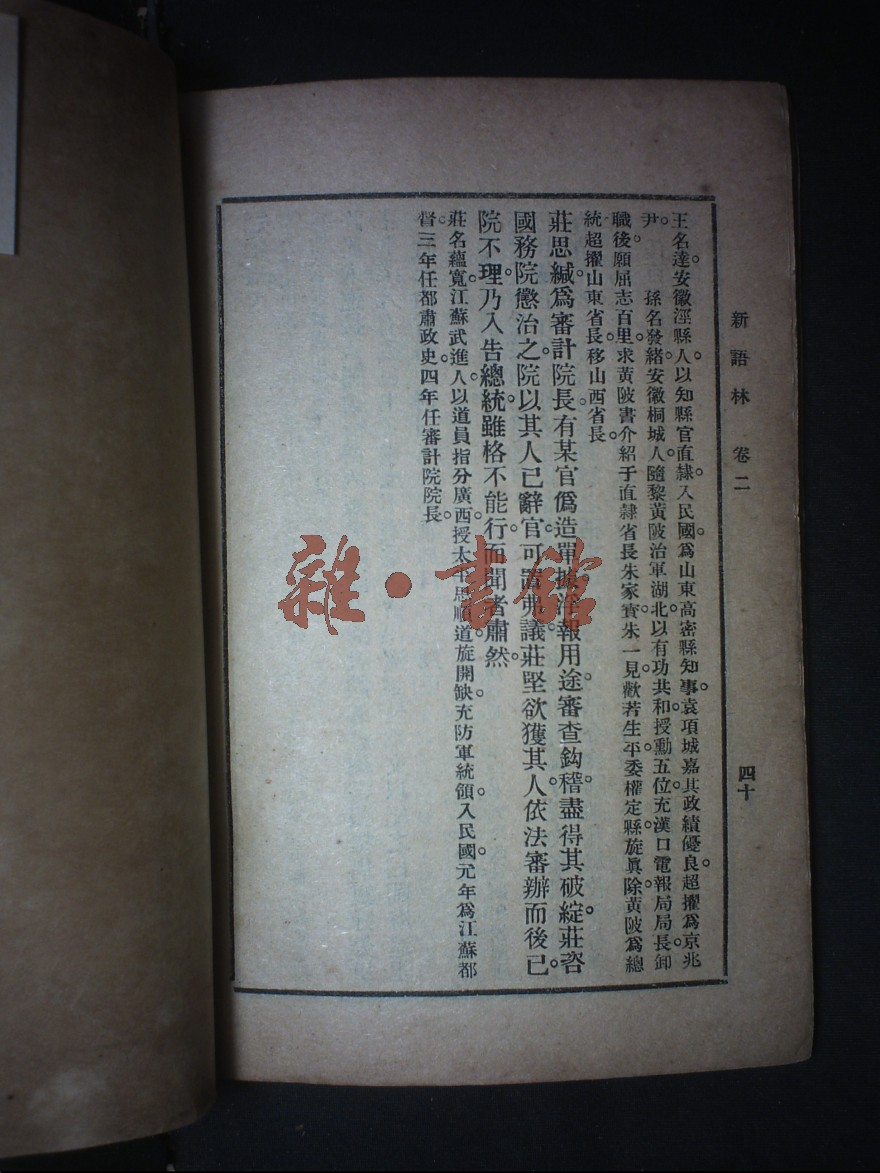 新語林 卷二
四十
王名達。安徽涇縣人。以知縣官直隷。入民國。爲山東高密縣知事。袁項城嘉其政績優良。超擢爲京兆
尹。 孫名發緒。安徽桐城人。隨黎黃陂治軍湖北。以有功共和。授勳五位。充漢口電報局局長。卸
職後。願屈志百里。求黃陂書介紹于直隷省長朱家寶。朱一見歡若生平。委權定縣。旋眞除。黃陂爲總
統。超擢山東省長。移山西省長。
莊思緘爲審計院長。有某官僞造單據。浮報用途。審查鈎稽。盡得其破綻。莊咨
國務院懲治之。院以其人已辭官。可置弗議。莊堅欲獲其人。依法審辦而後已。
院不理。乃入告總統。雖格不能行。而聞者肅然。
莊名蘊寬。江蘇武進人。以道員指分廣西。授太平思順道。旋開缺。充防軍統領。入民國。元年爲江蘇都
督。三年任都肅政史。四年任審計院院長。
雜·書館